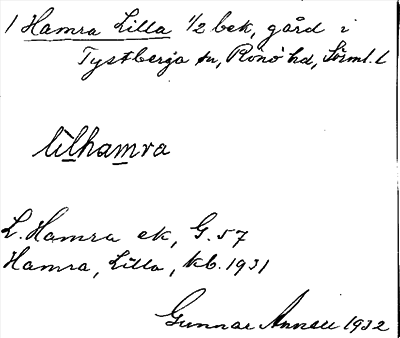 1 Hamra Lilla 1/2 bek, gård i
Tystberga sn, Rönö hd, Sörml. L
lilhamra
L. Hamra ek, G. 57
Hamra, Lilla, kb. 1931
Gunnar 1932